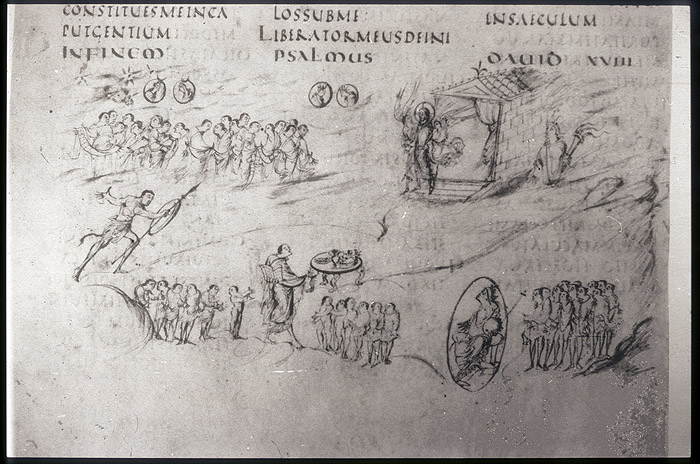 CONSTITUES ME IN CA
PUT GENTIUM
IN FINEM
LOS SUB ME
LIBERATOR MEUS DE INI
PSALMUS
IN SAECULUM
DAUID XVIII